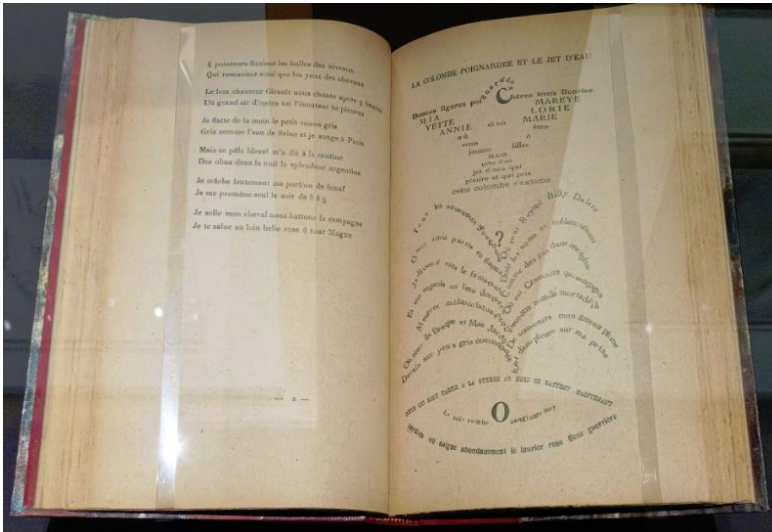 4 pointeurs fixaient les bulles des niveaux
Qui remuaient ainsi que les yeux des chevaux
Le bon chanteur Girault nous chante après 9 heures
Un grand air d'opéra toi l'écoutant tu pleures
Je flatte de la main le petit canon gris
Gris comme l'eau de Seine et je songe à Paris
Mais ce pâle blessé m'a dit à la cantine
Des obus dans la nuit la splendeur argentine
Je mâche lentement ma portion de bœuf
Je me promène seul le soir de 5 à 9
Je selle mon cheval nous battons la campagne
Je te salue au loin belle rose ô tour Magne
— 2 —
LA COLOMBE POIGNARDÉE ET LE JET D'EAU
Douces figures poignardées Chères lèvres fleuries
MIA MAREYE
YETTE LORIE
ANNIE et toi MARIE
où êtes-
vous ô
jeunes filles
MAIS
près d'un
jet d'eau qui
pleure et qui prie
cette colombe s'extasie
?
Tous les souvenirs de
O mes amis partis en guerre
Et vos regards en l'eau dormant
Meurent mélancoliquement
Où sont-ils Braque et Max Jacob
Derain aux yeux gris comme l'aube
Où sont Raynal Billy Dalize
Dont les noms se mélancolisent
Comme des pas dans une église
Où est Cremnitz qui s'engagea
Peut-être sont-ils morts déjà
De souvenirs mon âme est pleine
Le jet d'eau pleure sur ma peine
CEUX QUI SONT PARTIS A LA GUERRE AU NORD SE BATTENT MAINTENANT
Le soir tombe O sanglante mer
Jardins où saigne abondamment le laurier rose fleur guerrière